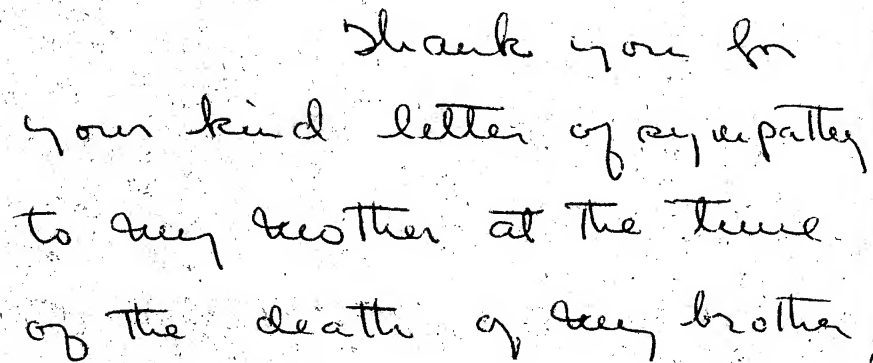 Thank you for
your kind letter of sympathy
to my mother at the time
of the death of my brother,